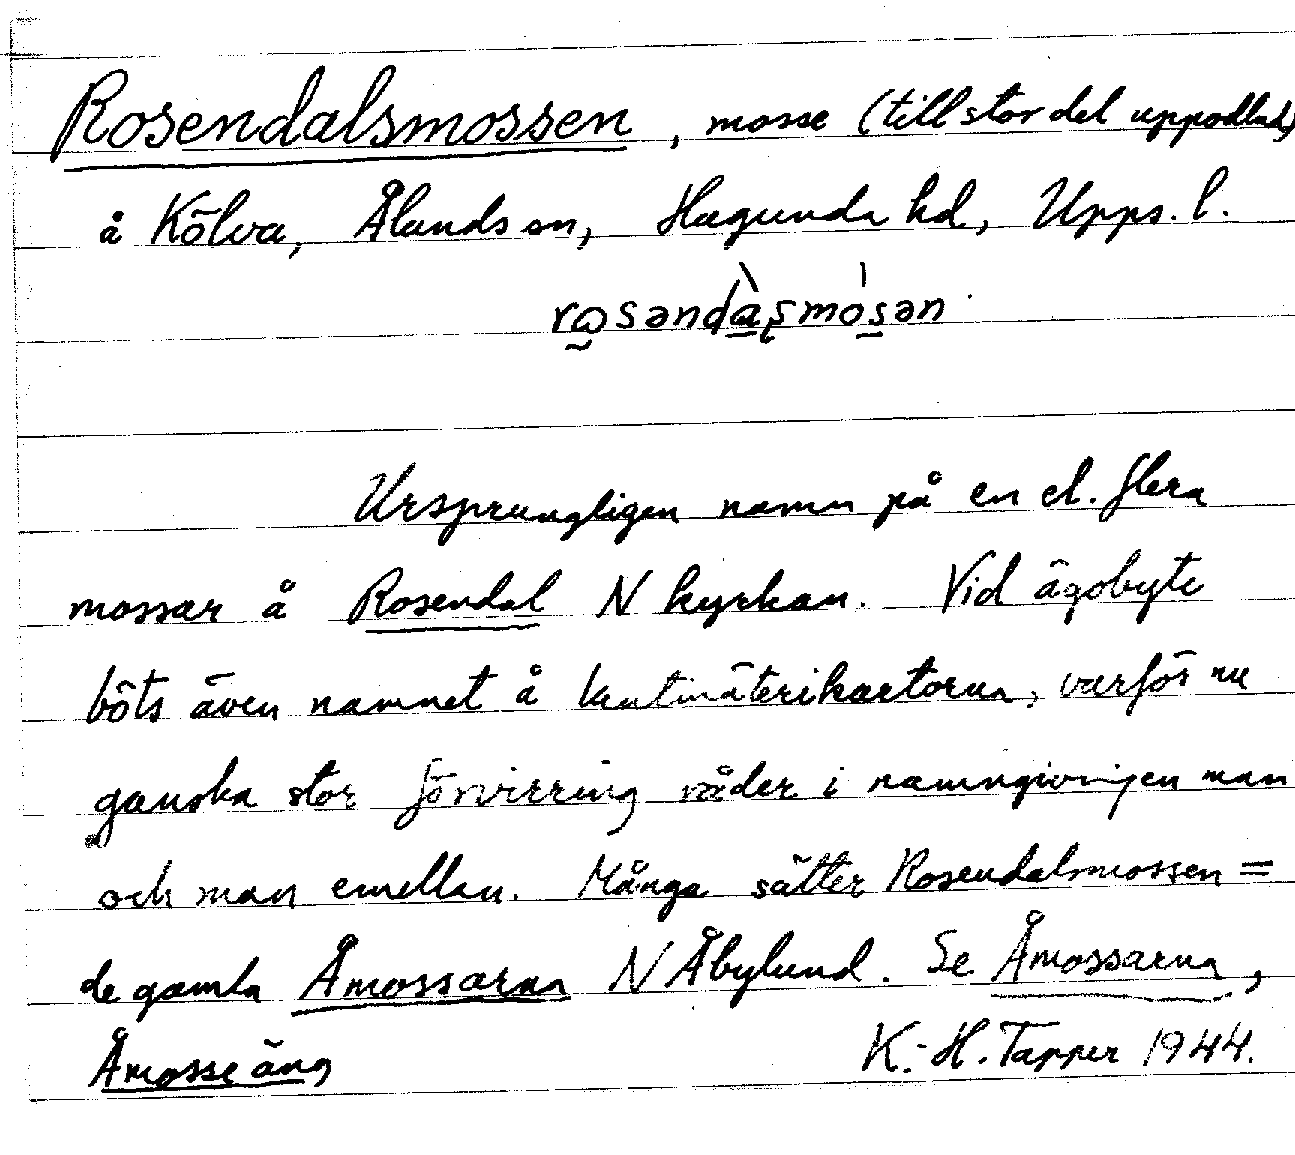 Rosendalsmossen, mosse (till stor del uppodlad)
å Kölva, Ålands sn, Hagunda hd, Upps. l.
Ursprungligen namn på en el. flera
mossar å Rosendal N kyrkan. Vid ägobyte
böts även namnet å lantmäterikartorna, varför nu
ganska stor förvirring råder i namngivningen man
och man emellan. Många sätter Rosendalsmossen =
de gamla Åmossarna N Åbylund. Se Åmossarna,
Åmosseäng K.-H. Tapper 1944.